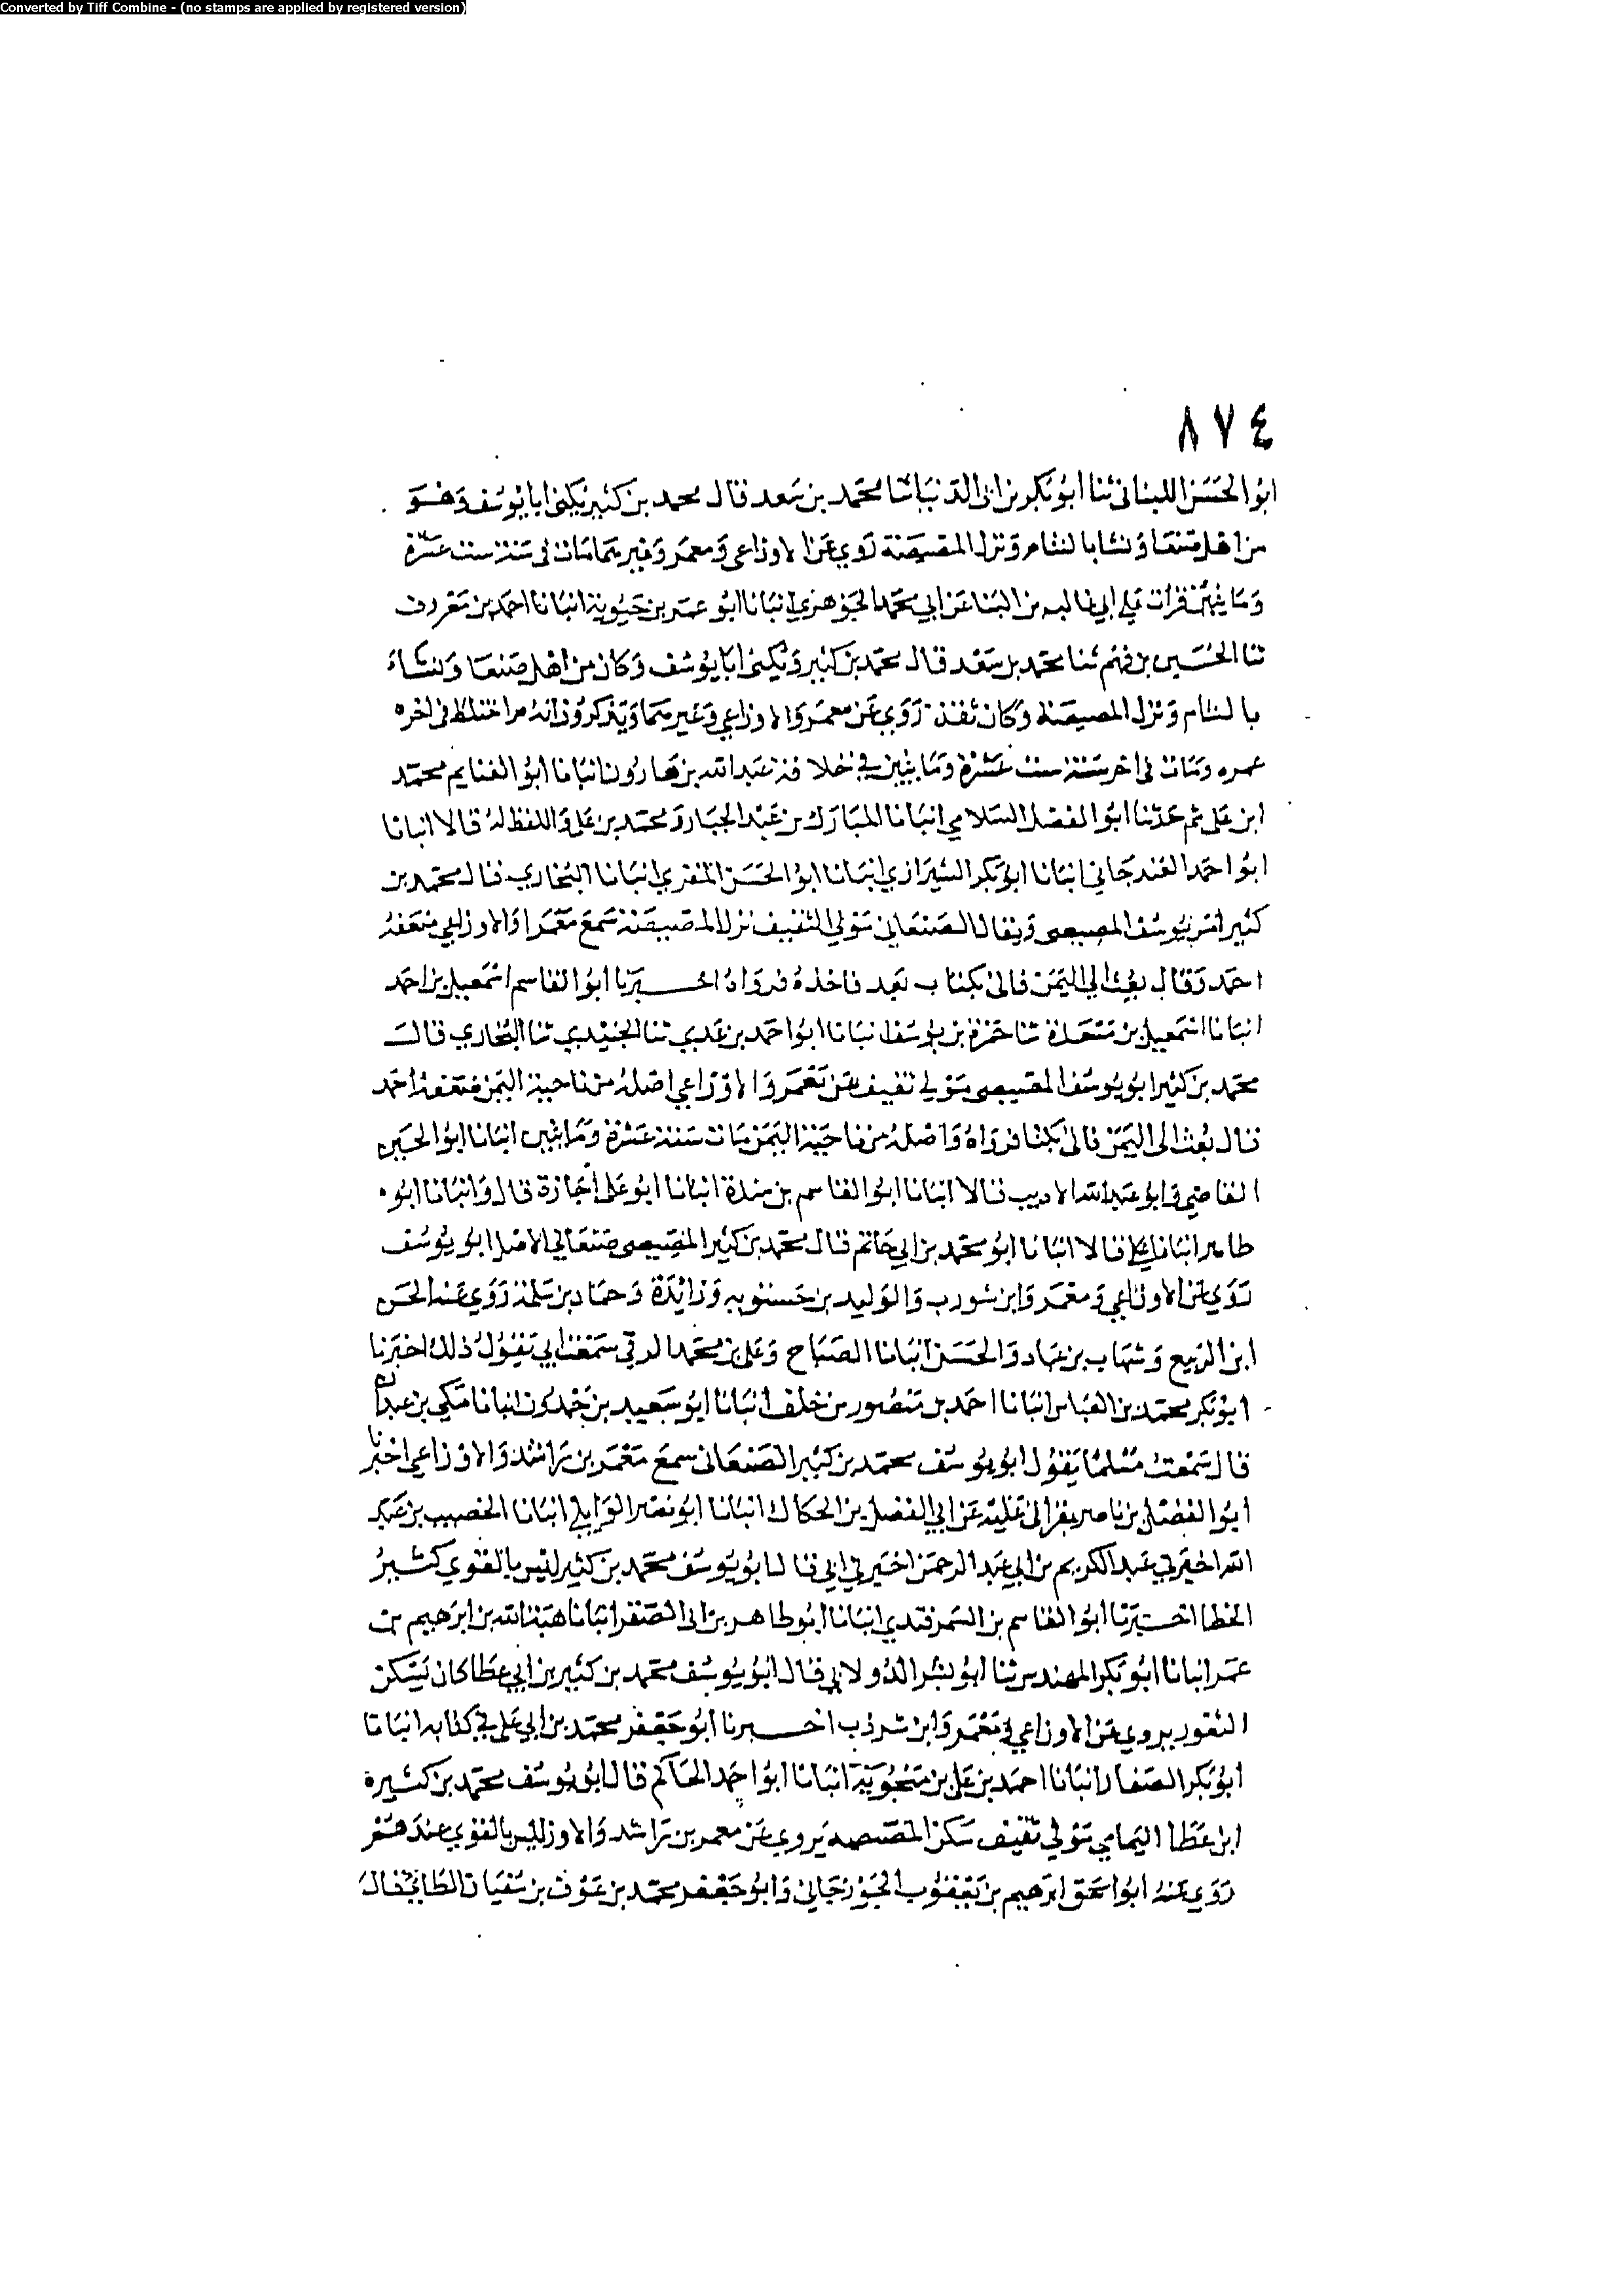 Converted by Tiff Combine - (no stamps are applied by registered version)
٨٧٤
ابوا الحسن اللبنانى ثنا ابو بكر بن ابى الدنيا ثنا محمد بن سعد قال محمد بن كثير يكنى ابا يوسف وهو
من اهل صنعا ونشا بالشام ونزل المصيصة روي عن الاوزاعى ومعمر وغيرهما مات فى سنة ست عشرة
وما يتين قرات على ابي غالب بن البنا عن ابي محمد الجوهري انبانا ابو عمر بن حيوية انبانا احمد بن معروف
ثنا الحسين بن فهم ثنا محمد بن سعد قال محمد بن كثير ويكنى ابا يوسف وكان من اهل صنعا ونشاء
بالشام ونزل المصيصة وكان ثقة روي عن معمر والاوزاعي وغيرهما ويذكرون انه مر اختلط فى اخره
عمره ومات فى اخر سنة ست عشرة وما يتين في خلافة عبد الله بن هارون انبانا ابو الغنايم محمد
ابن على ثم حدثنا ابوا الفضل السلامي انبانا المبارك بن عبد الجبار ومحمد بن على واللفظ له قالا انبانا
ابوا احمد الغندجاني انبانا ابو بكر الشيرازي انبانا ابوا الحسن المقري انبانا البخاري قال محمد بن
كثير ابو يوسف المصيصى ويقال الصنعاني مولي الثقيف نزل المصيصة سمع معمرا والاوزاعي ضعفه
احمد وقال بعث الي اليمن فاتى بكتاب بعد فاخذه فرواه اخبرنا ابوا القاسم اسمعيل بن احمد
انبانا اسمعيل بن مسعدة ثنا حمزة بن يوسف انبانا ابوا احمد بن عدي ثنا الجنيدي ثنا البخاري قال
محمد بن كثير ابو يوسف المصيصى مولي ثقيف عن معمر والاوزاعي اصله من ناحية اليمن ضعفه احمد
قال بعث الى اليمن فاتى بكتاب فرواه واصله من ناحية اليمن مات سنة عشرة وما يتين انبانا ابوا الحسين
القاضي وابو عبد الله الاديب قالا انبانا ابوا القاسم بن مندة انبانا ابو على اجازة قال وانبانا ابو
طاهر انبانا علي قالا انبانا ابو محمد بن ابي حاتم قال محمد بن كثير المصيصى صنعاني الاصل ابو يوسف
روي عن الاوزاعي ومعمر وابن شوذب والوليد بن حسنويه وزائدة وحماد بن سلمة روي عنه الحسن
ابن الربيع وشهاب بن عباد والحسن انبانا الصباح وعلى بن محمد الدقي سمعت ابي يقول ذلك اخبرنا
ابو بكر محمد بن العباس انبانا احمد بن منصور بن خلف انبانا ابو سعيد بن حمدون انبانا مكي بن عبدان
قال سمعت مسلما يقول ابو يوسف محمد بن كثير الصنعانى سمع معمر بن راشد والاوزاعي اخبرنا
ابوا الفضل بن ناصر بقراتى عليه عن ابي الفضل بن الحكاك انبانا ابو نصر الوايلي انبانا الخصيب بن عبد
الله اخبرني عبد الكريم بن ابي عبد الرحمن اخبرني ابي قال ابو يوسف محمد بن كثير ليس بالقوي كثير
الخطا اخبرنا ابوا القاسم بن السمرقندي انبانا ابو طاهر بن ابى الصقر انبانا هبة الله بن ابرهيم بن
عمر انبانا ابو بكر المهندس ثنا ابو بشر الدولابي قال ابو يوسف محمد بن كثير بن ابي عطا كان يسكن
الثغور يروي عن الاوزاعي ومعمر وابن شوذب اخبرنا ابو جعفر محمد بن ابي على في كتابه انبانا
ابو بكر الصفار انبانا احمد بن على بن منجوية انبانا ابوا احمد الحاكم قال ابو يوسف محمد بن كثيره
ابن عطا اليمامي مولي ثقيف سكن المصيصه يروي عن معمر بن راشد والاوز ليس بالقوي عندهم
روي عنه ابوا اسحق ابرهيم بن يعقوب الجوزجاني وابو جعفر محمد بن عوف بن سفيان الطايي قال